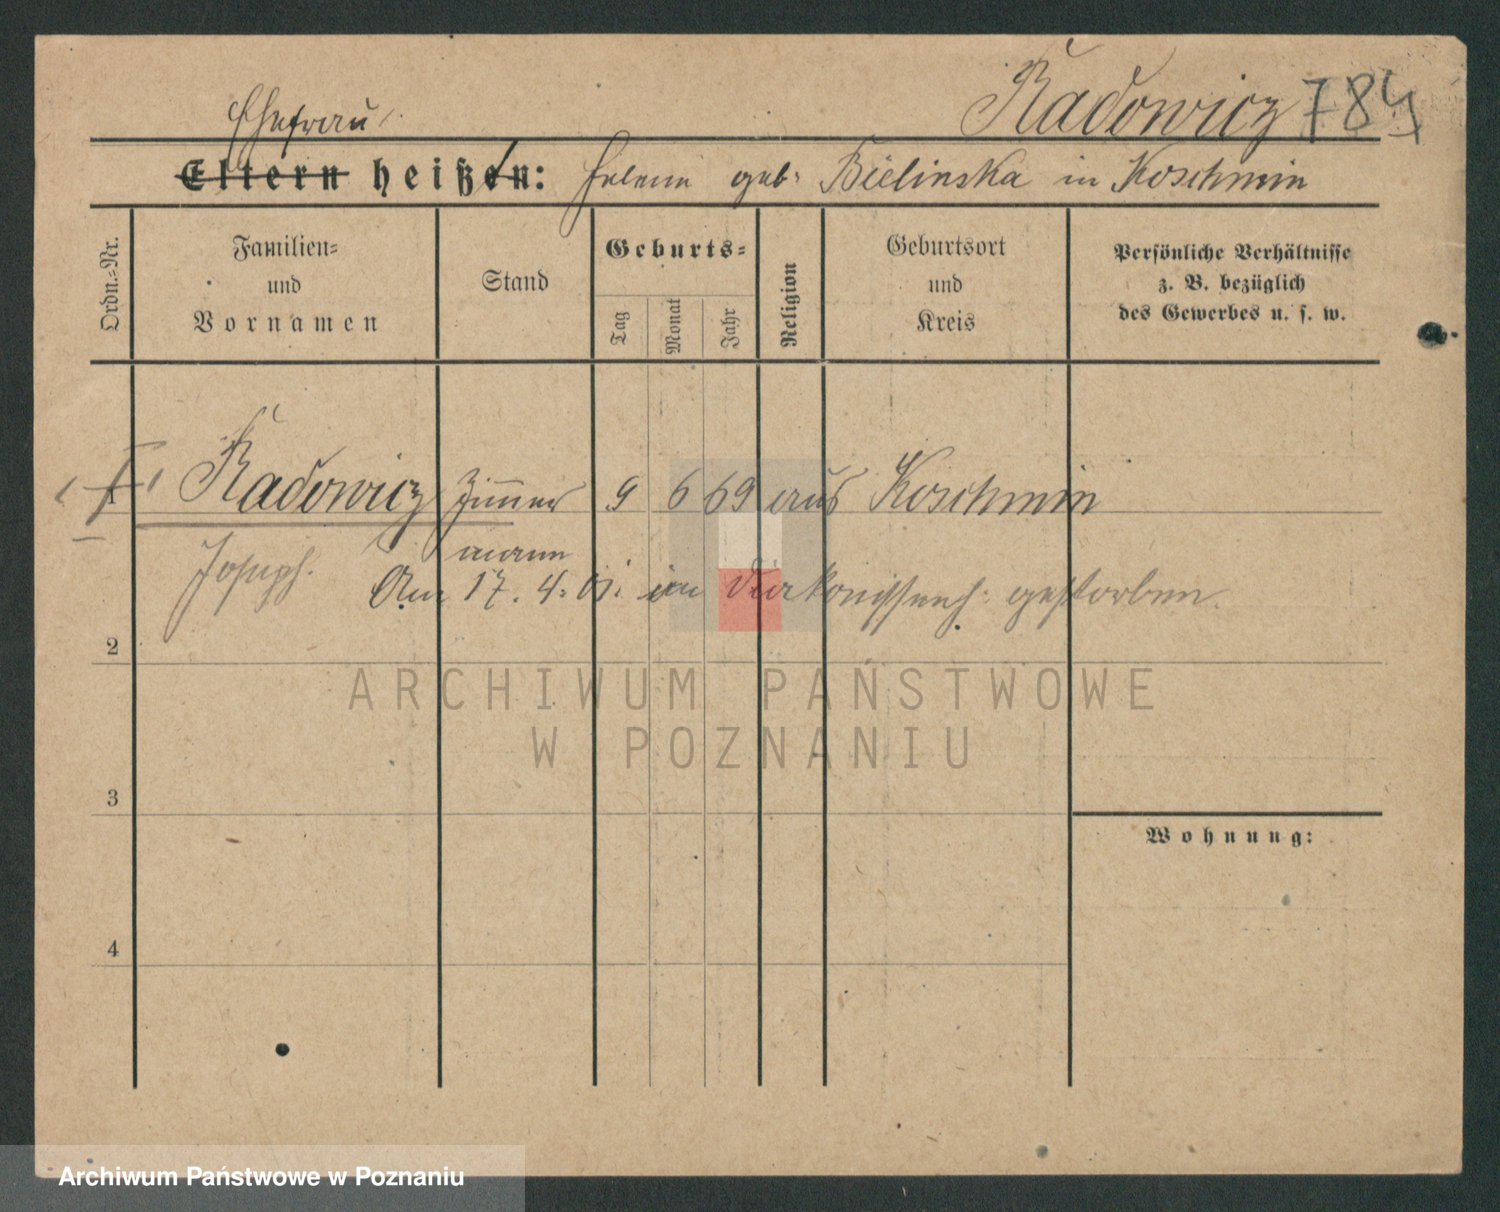 Radowicz 784
Ehefrau
Eltern heißen: Helene geb. Bielinska in Koschmin
Ordn.-Nr.
Familien-
und
Vornamen
Stand
Geburts-
Tag
Monat
Jahr
Religion
Geburtsort
und
Kreis
Persönliche Verhältnisse
z. B. bezüglich
des Gewerbes u. s. w.
1 Radowicz Zimmer 9 6 69 aus Koschmin
Joseph. mann
Am 17. 4. 01. im Diakonissenh. gestorben.
2
ARCHIWUM PAŃSTWOWE
W POZNANIU
3
Wohnung:
4
Archiwum Państwowe w Poznaniu